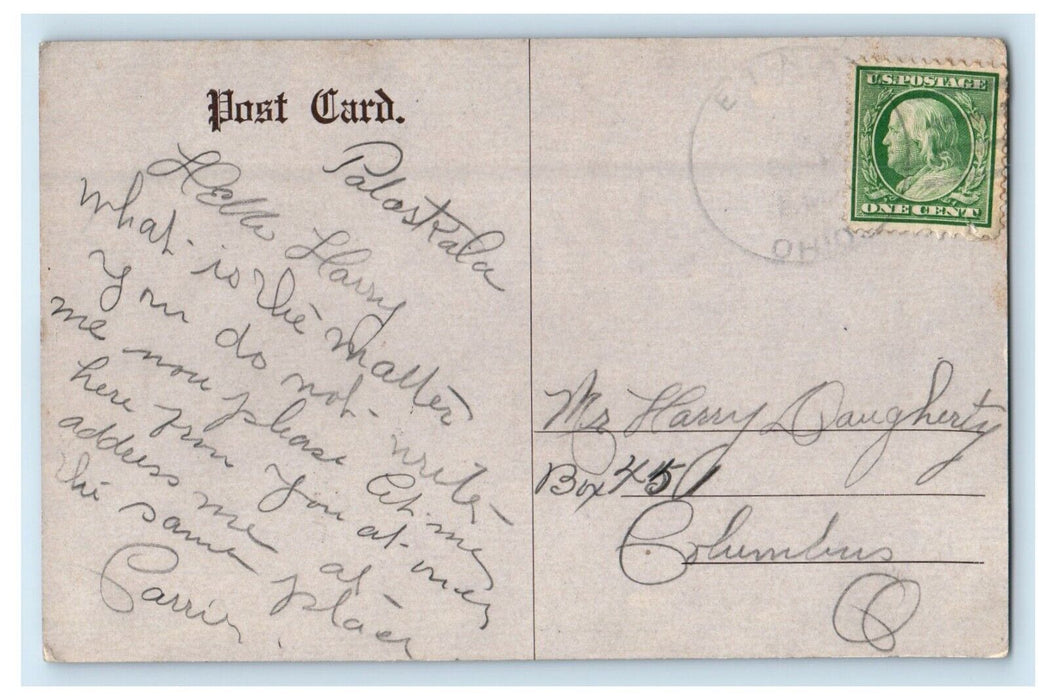 Post Card.
Pataskala
Hello Harry
what is the matter
you do not write
me now please let me
here from you at once
address me at
the same place
Carrie.
U.S. POSTAGE
ONE CENT
OHIO
Mr Harry Daugherty
Box 451
Columbus
O